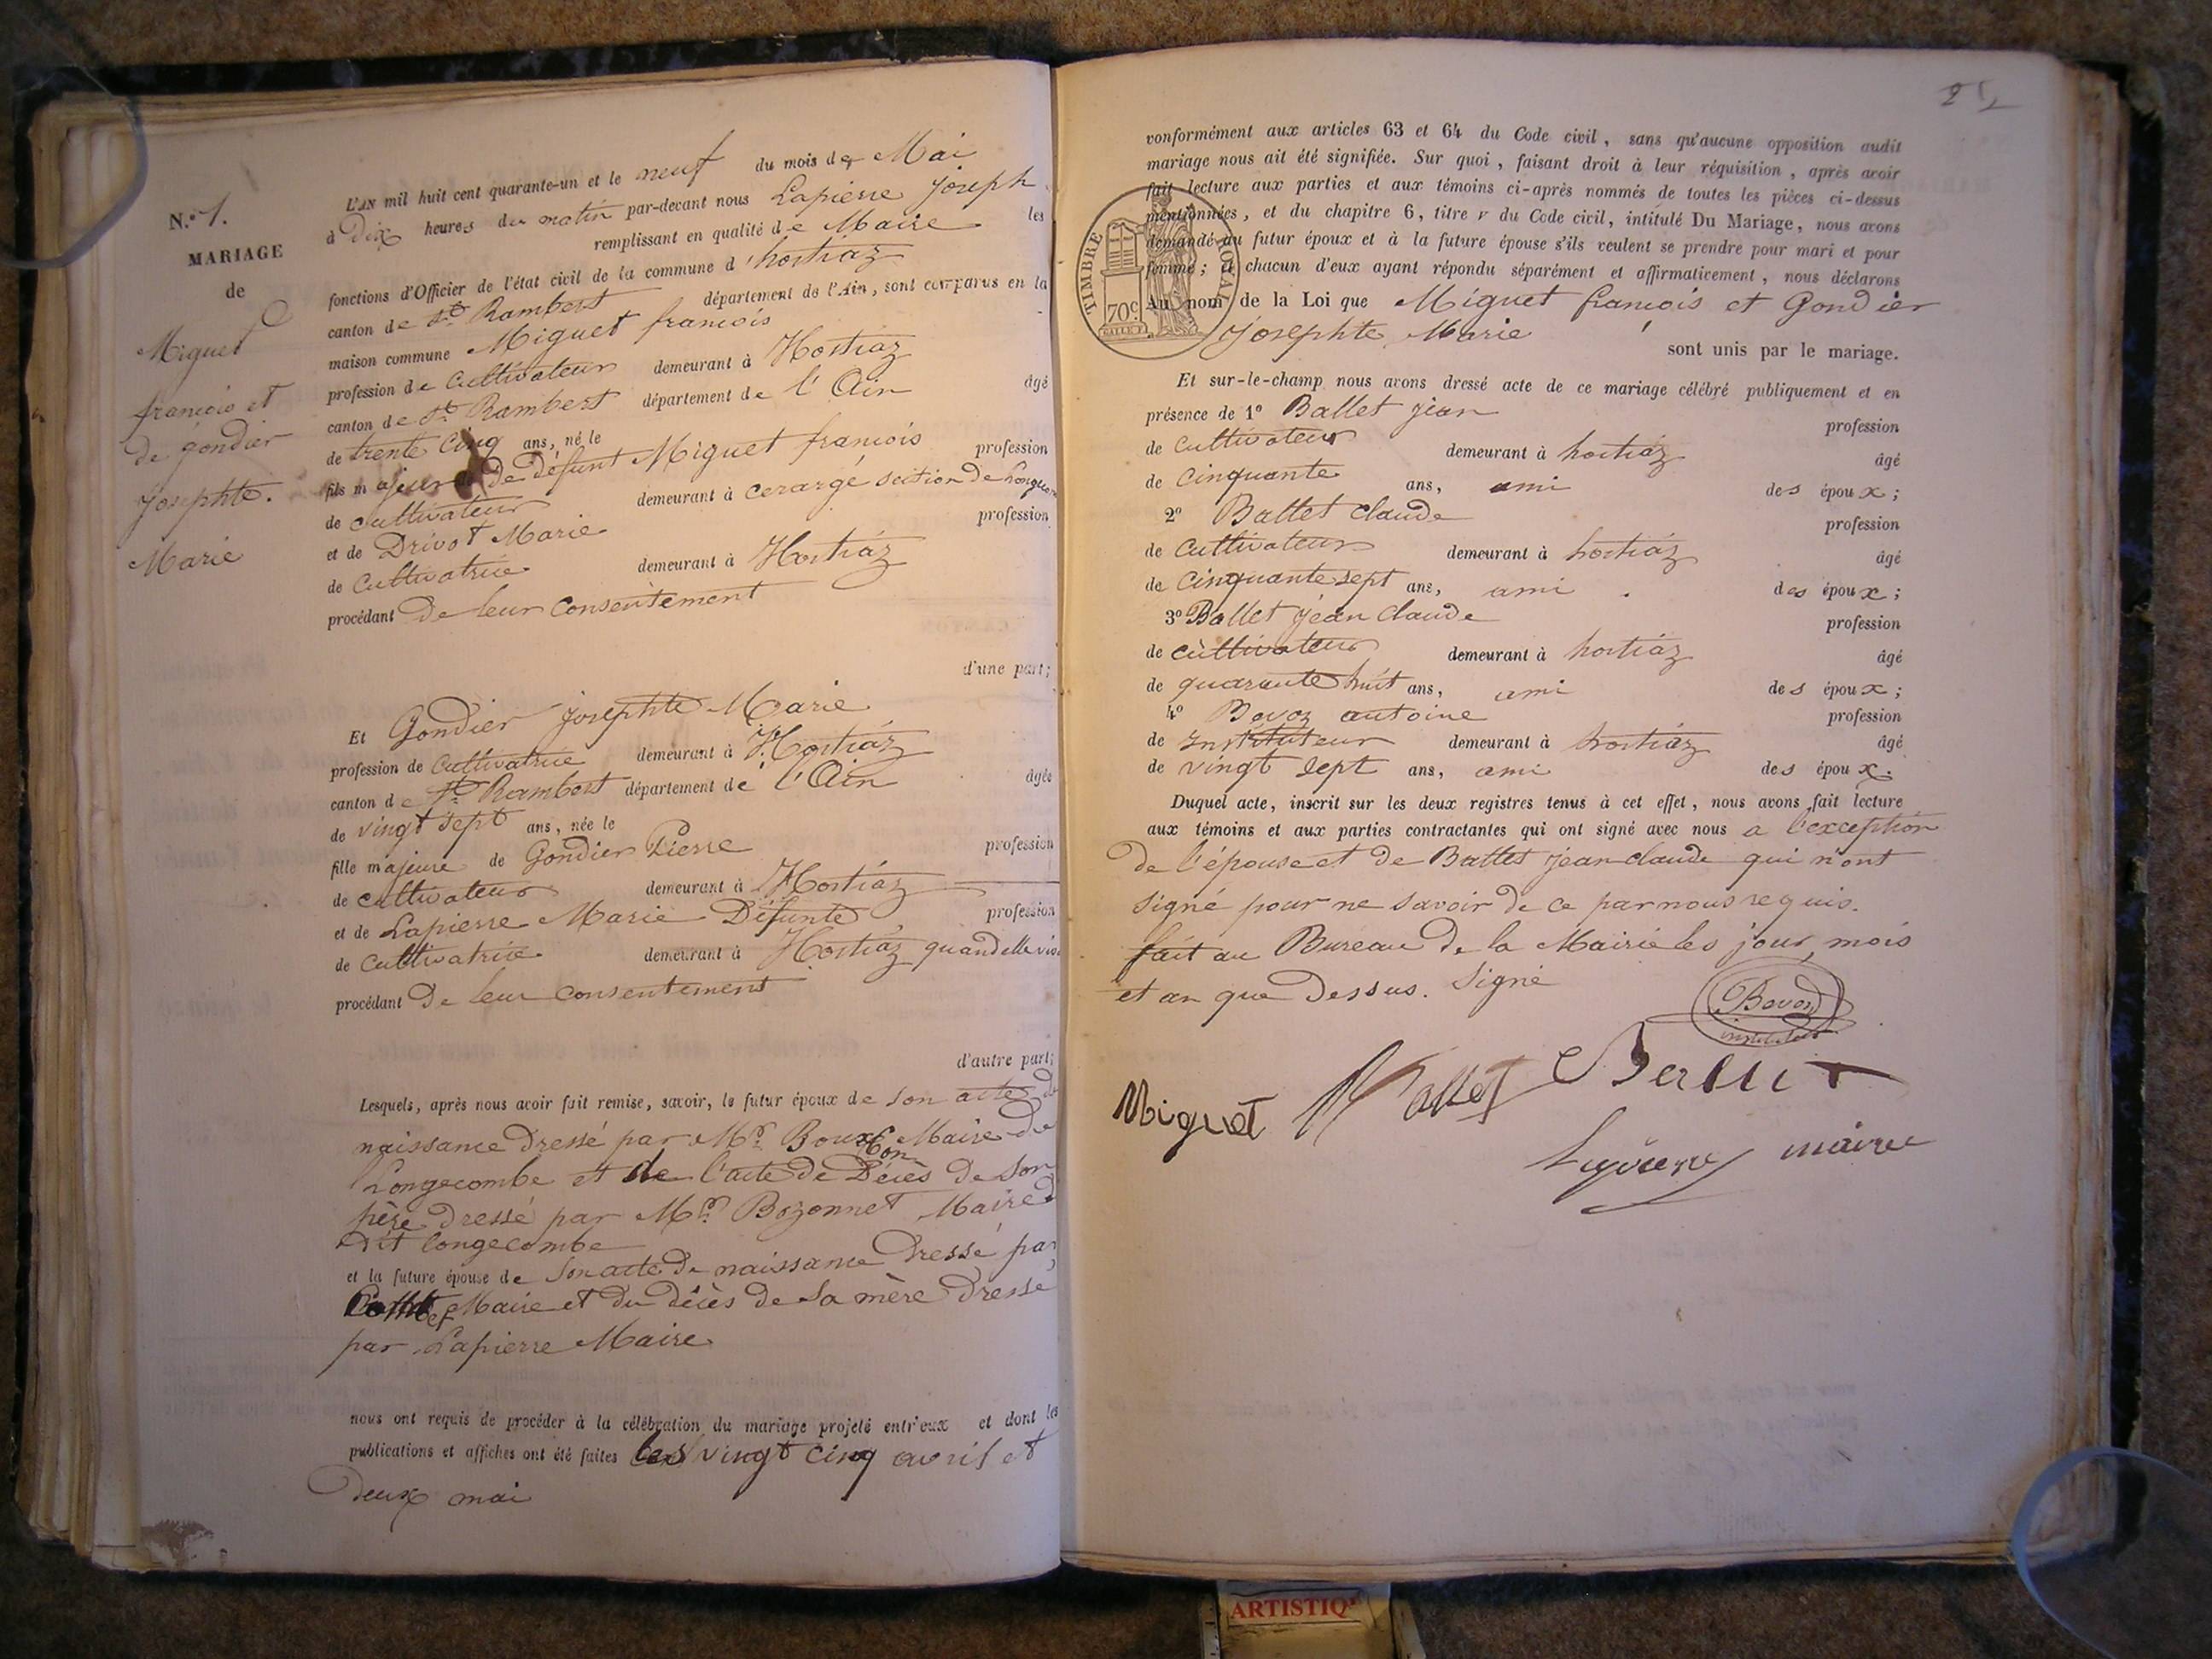 N.º 1.
MARIAGE
de
Miguet
francois et
de gondier
Josephte.
Marie
L'AN mil huit cent quarante-un et le neuf du mois de Mai
à Dix heures du matin par-devant nous Lapierre Joseph
remplissant en qualité de Maire les
fonctions d'Officier de l'état civil de la commune d'hostiaz
canton de St Rambert département de l'Ain, sont comparus en la
maison commune Miguet francois
profession de Cultivateur demeurant à Hostiaz
canton de St Rambert département de l'Ain âgé
de trente Cinq ans, né le
fils majeur de Défunt Miguet francois profession
de cultivateur demeurant à cerargé section de
et de Drivot Marie profession
de Cultivatrice demeurant à Hostiáz
procédant De leur Consentement
d'une part;
Et Gondier Josephte Marie
profession de Cultivatrice demeurant à Hostiáz
canton de St Rambert département de l'Ain âgée
de vingt sept ans, née le
fille majeure de Gondier Pierre profession
de cultivateur demeurant à Hostiáz
et de Lapierre Marie Défunte profession
de Cultivatrice demeurant à Hostiáz quand elle
procédant De leur consentement
d'autre part;
Lesquels, après nous avoir fait remise, savoir, le futur époux de son acte de
naissance Dressé par Mr. Maire de
Longecombe et de l'acte de Décès de son
père dressé par Mr. Bozonnet Maire d
dit longecombe
et la future épouse de Son acte De naissance Dressé par
Maire et du décès de sa mère Dressé
par Lapierre Maire
nous ont requis de procéder à la célébration du mariage projeté entr'eux et dont les
publications et affiches ont été faites les vingt cinq avril et
Deux mai
conformément aux articles 63 et 64 du Code civil, sans qu'aucune opposition audit
mariage nous ait été signifiée. Sur quoi, faisant droit à leur réquisition, après avoir
fait lecture aux parties et aux témoins ci-après nommés de toutes les pièces ci-dessus
mentionnées, et du chapitre 6, titre v du Code civil, intitulé Du Mariage, nous avons
demandé au futur époux et à la future épouse s'ils veulent se prendre pour mari et pour
femme; et chacun d'eux ayant répondu séparément et affirmativement, nous déclarons
Au nom de la Loi que Miguet francois et Gondier
Josephte Marie
sont unis par le mariage.
TIMBRE ROYAL
70c.
Et sur-le-champ nous avons dressé acte de ce mariage célébré publiquement et en
présence de 1º Ballet jean profession
de cultivateur demeurant à hostiáz âgé
de Cinquante ans, ami des époux;
2º Ballet Claude profession
de Cultivateur demeurant à hostiáz âgé
de Cinquante sept ans, ami des époux;
3º Ballet jean Claude profession
de cultivateur demeurant à hostiáz âgé
de quarante huit ans, ami des époux;
4º Bovoz antoine profession
de Instituteur demeurant à hostiáz âgé
de vingt sept ans, ami des époux.
Duquel acte, inscrit sur les deux registres tenus à cet effet, nous avons fait lecture
aux témoins et aux parties contractantes qui ont signé avec nous a l'exception
De l'épouse et de Ballet jean claude qui n'ont
signé pour ne savoir de ce par nous requis.
fait au Bureau De la Mairie les jour, mois
et an que Dessus. Signé
Bovoz
instituteur
Miguet Ballet
Lapierre maire
ARTISTIQ